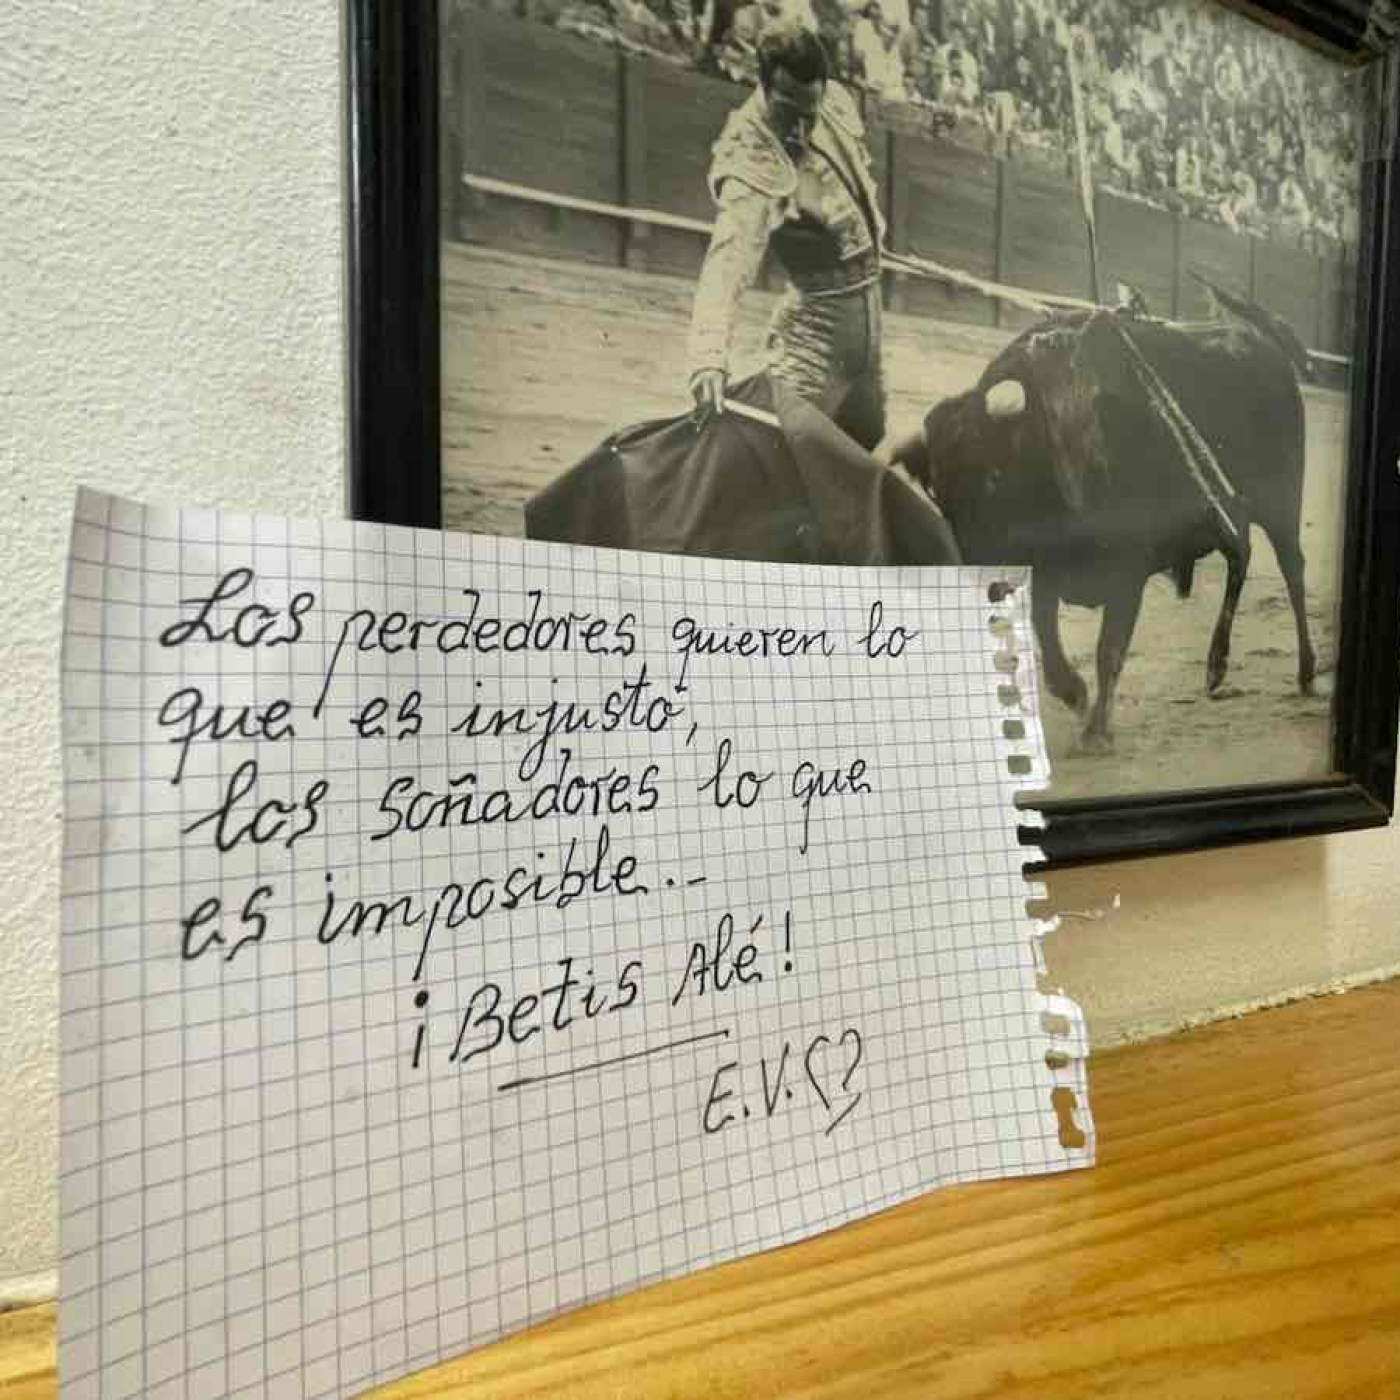 Los perdedores quieren lo
que es injusto,
los soñadores lo que
es imposible...
¡Betis Alé!
E.V.